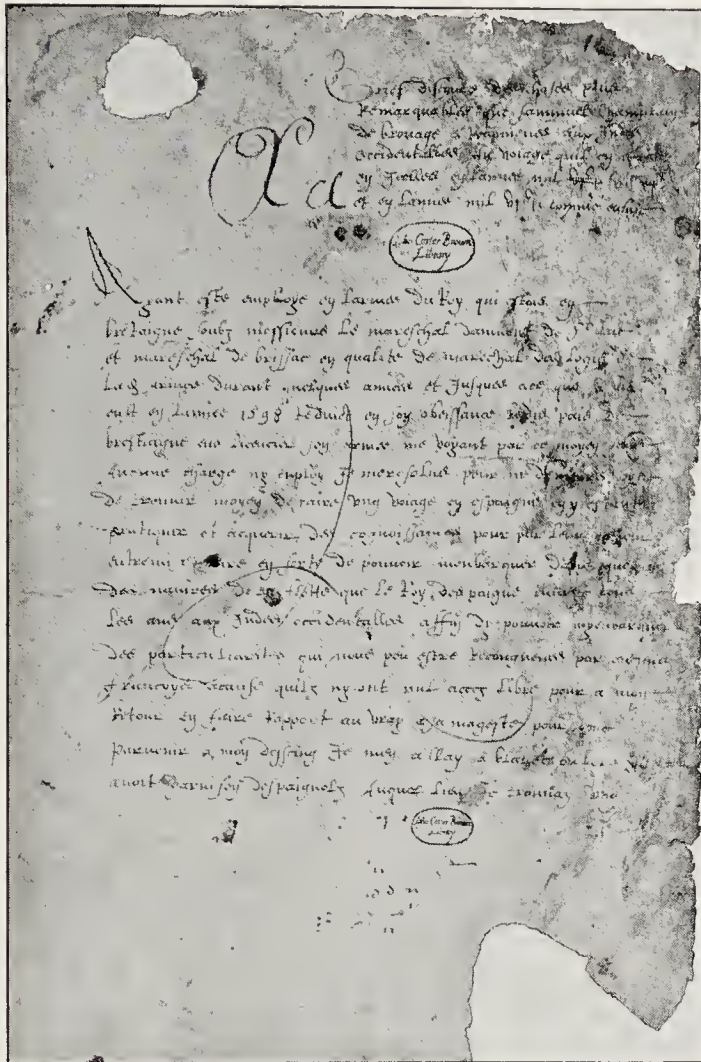 Brief discours des choses plus
Remarquables que sammuel Champlain
de brouage a Recognues aux Indes
occidentalles Au voiage quil en a faict
en Icelles en lannee mil
et en lannee mil vj^c j comme ensuit
John Carter Brown
Library
Ayant este employe en larmee du Roy qui estoit en
bretaigne soubz messieurs Le mareschal daumont de s^t Luc
et mareschal de brissac en qualite de mareschal des logis
durant quelques annees et Jusques a ce que
eust en Lannee 1598 Reduict en son obeissance pais de
brestaigne licencie son armee me voyant par ce moyen
charge ny employ Je me resolus pour ne
de trouver moyen de faire ung voiage en espaigne et y estant
pratiquer et acquerir des cognoissances pour par Leur
entremise faire en sorte de pouvoir membarquer
des navires de la flotte que Le Roy despaigne envoye tous
Les ans aux Indes occidentalles affin de pouvoir
des particularites qui nont peu estre Recongneues par
francoys a cause quilz ny ont nul accez Libre pour a mon
Retour en faire Rapport au vray a sa mageste pour donc
parvenir a mon desseing Je men allay a blavet
avoit garnison despaignolz Auquel Lieu Je trouvay
John Carter Brown
Library